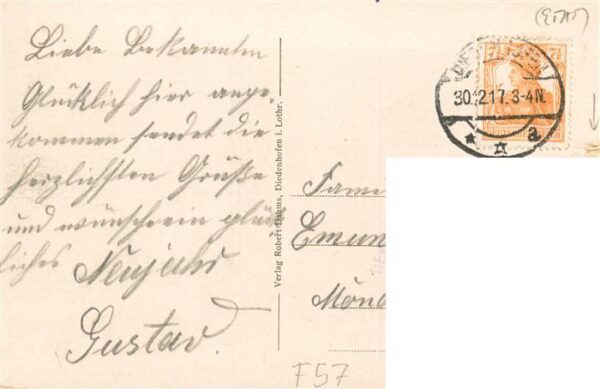 Liebe Bekannten
Glücklich hier ange-
kommen sendet die
herzlichsten Grüße
und wünsch ein glück-
liches Neujahr
Gustav.
Verlag Robert Dahms, Diedenhofen i. Lothr.
7½ 7½
30.12.17. 3-4N.
* a
Fame
Emun
Mönc
F57